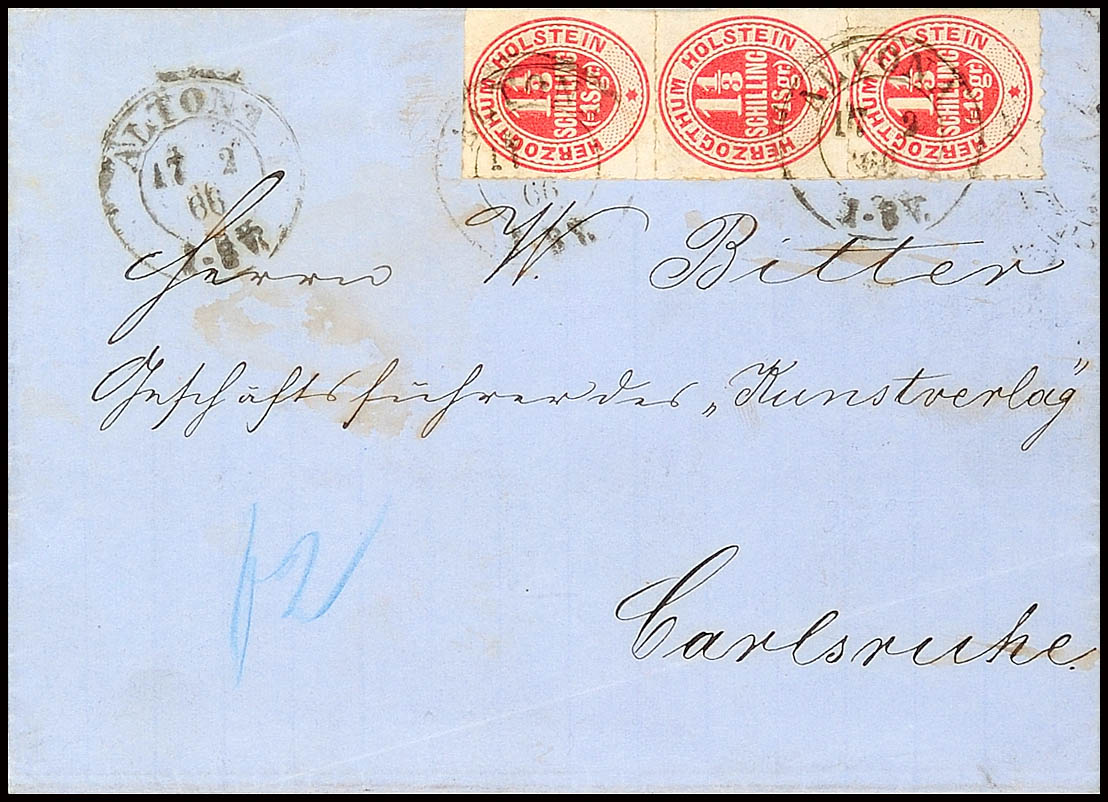 HERZOGTHUM HOLSTEIN 1 1/3 SCHILLING (=1Sgr.)
HERZOGTHUM HOLSTEIN 1 1/3 SCHILLING (=1Sgr.)
HERZOGTHUM HOLSTEIN 1 1/3 SCHILLING (=1Sgr.)
ALTONA
17 2
66
ALTONA
17 2
66
66
Herrn W. Bitter
Geschäftsführer des „Kunstverlag"
Carlsruhe.